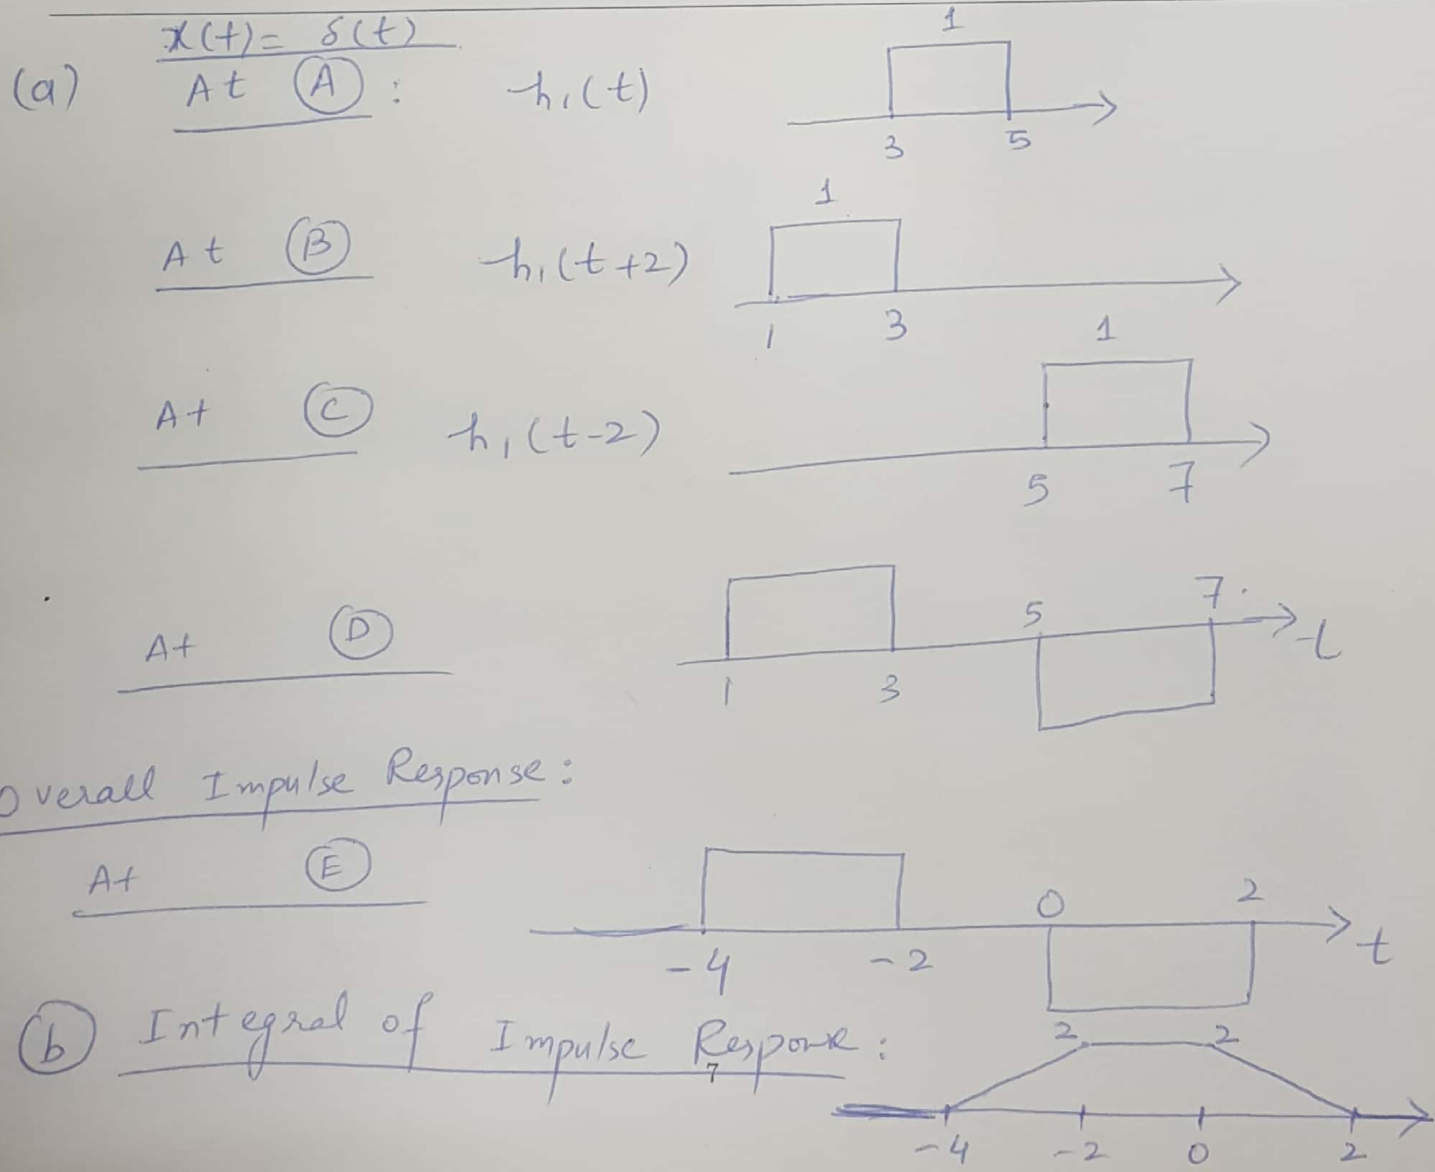 x(t) = δ(t)
(a) At (A) : h₁(t)
1
3 5
At (B) h₁(t+2)
1
1 3
At (C) h₁(t-2)
1
5 7
At (D)
1 3 5 7 t
Overall Impulse Response:
At (E)
-4 -2 0 2 t
(b) Integral of Impulse Response:
2 2
-4 -2 0 2
7